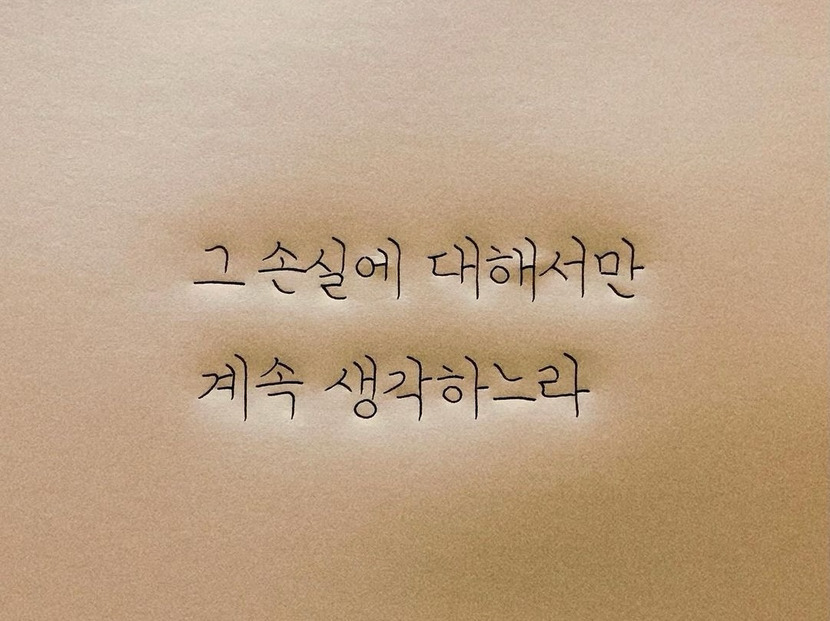 그 손실에 대해서만
계속 생각하느라